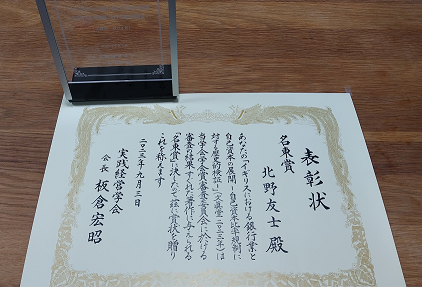 表彰状
名東賞
北野友士殿
あなたの「イギリスにおける銀行業と
自己資本の展開－自己資本比率規制に
対する歴史的検証－」(文眞堂二〇二三年)は
当学会学会賞審査委員会における
審査の結果すぐれた著作に与えられる
「名東賞」に決したので茲に賞状を贈り
これを称えます
二〇二三年九月三日
実践経営学会
会長 板倉宏昭